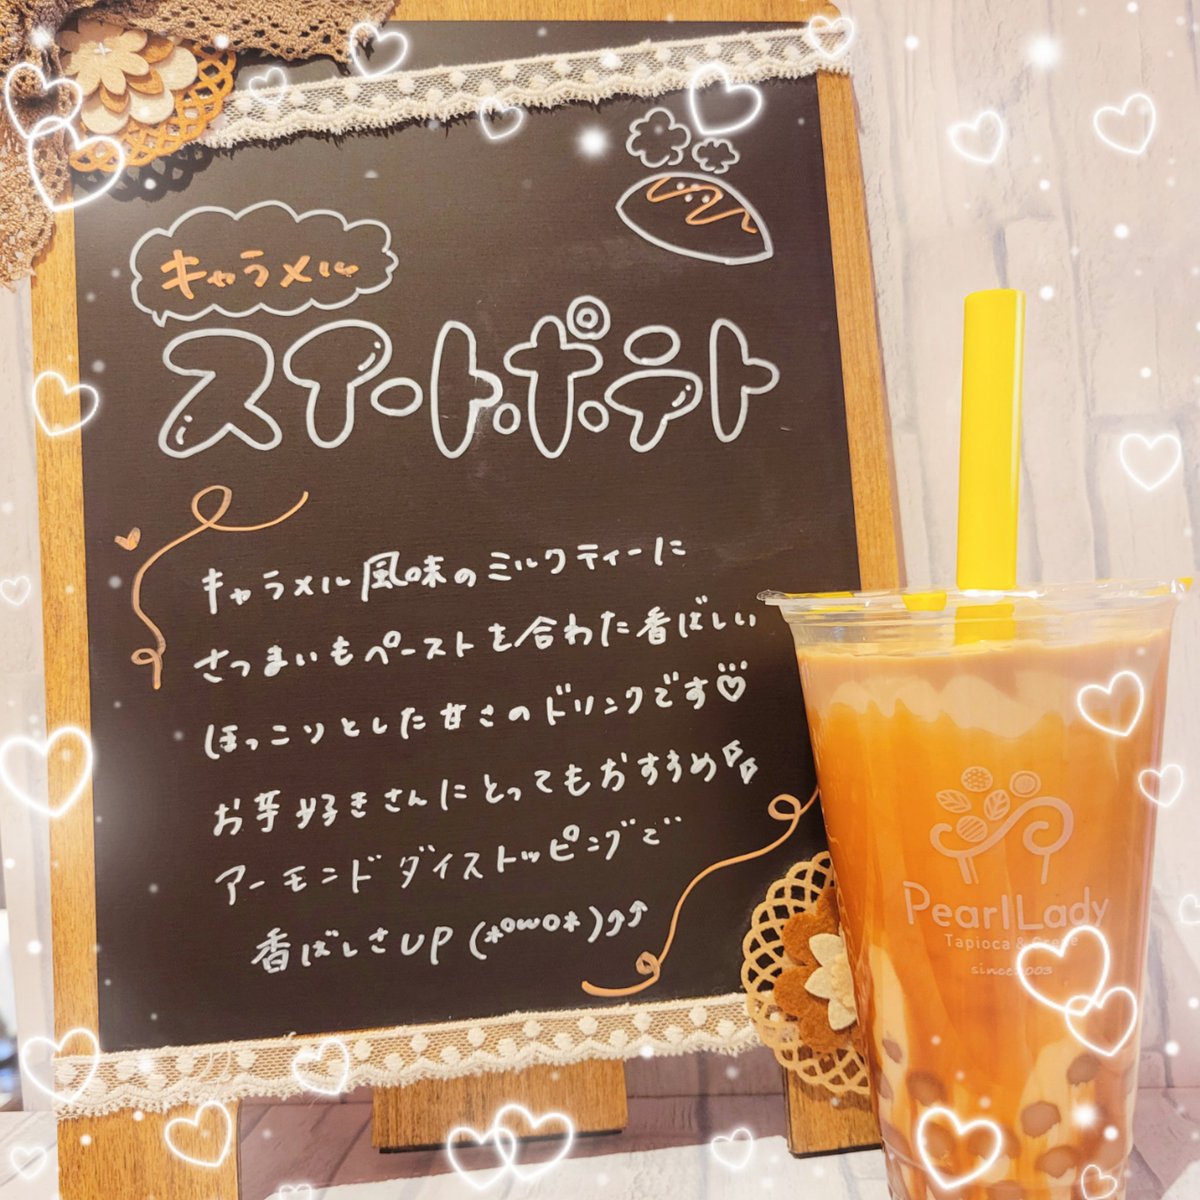 キャラメル
スイートポテト
キャラメル風味のミルクティーに
さつまいもペーストを合わせた香ばしい
ほっこりとした甘さのドリンクです♡
お芋好きさんにとってもおすすめ
アーモンドダイストッピングで
香ばしさUP (*°ω°*)♪↑
PearlLady
Tapioca & Crepe
since2003